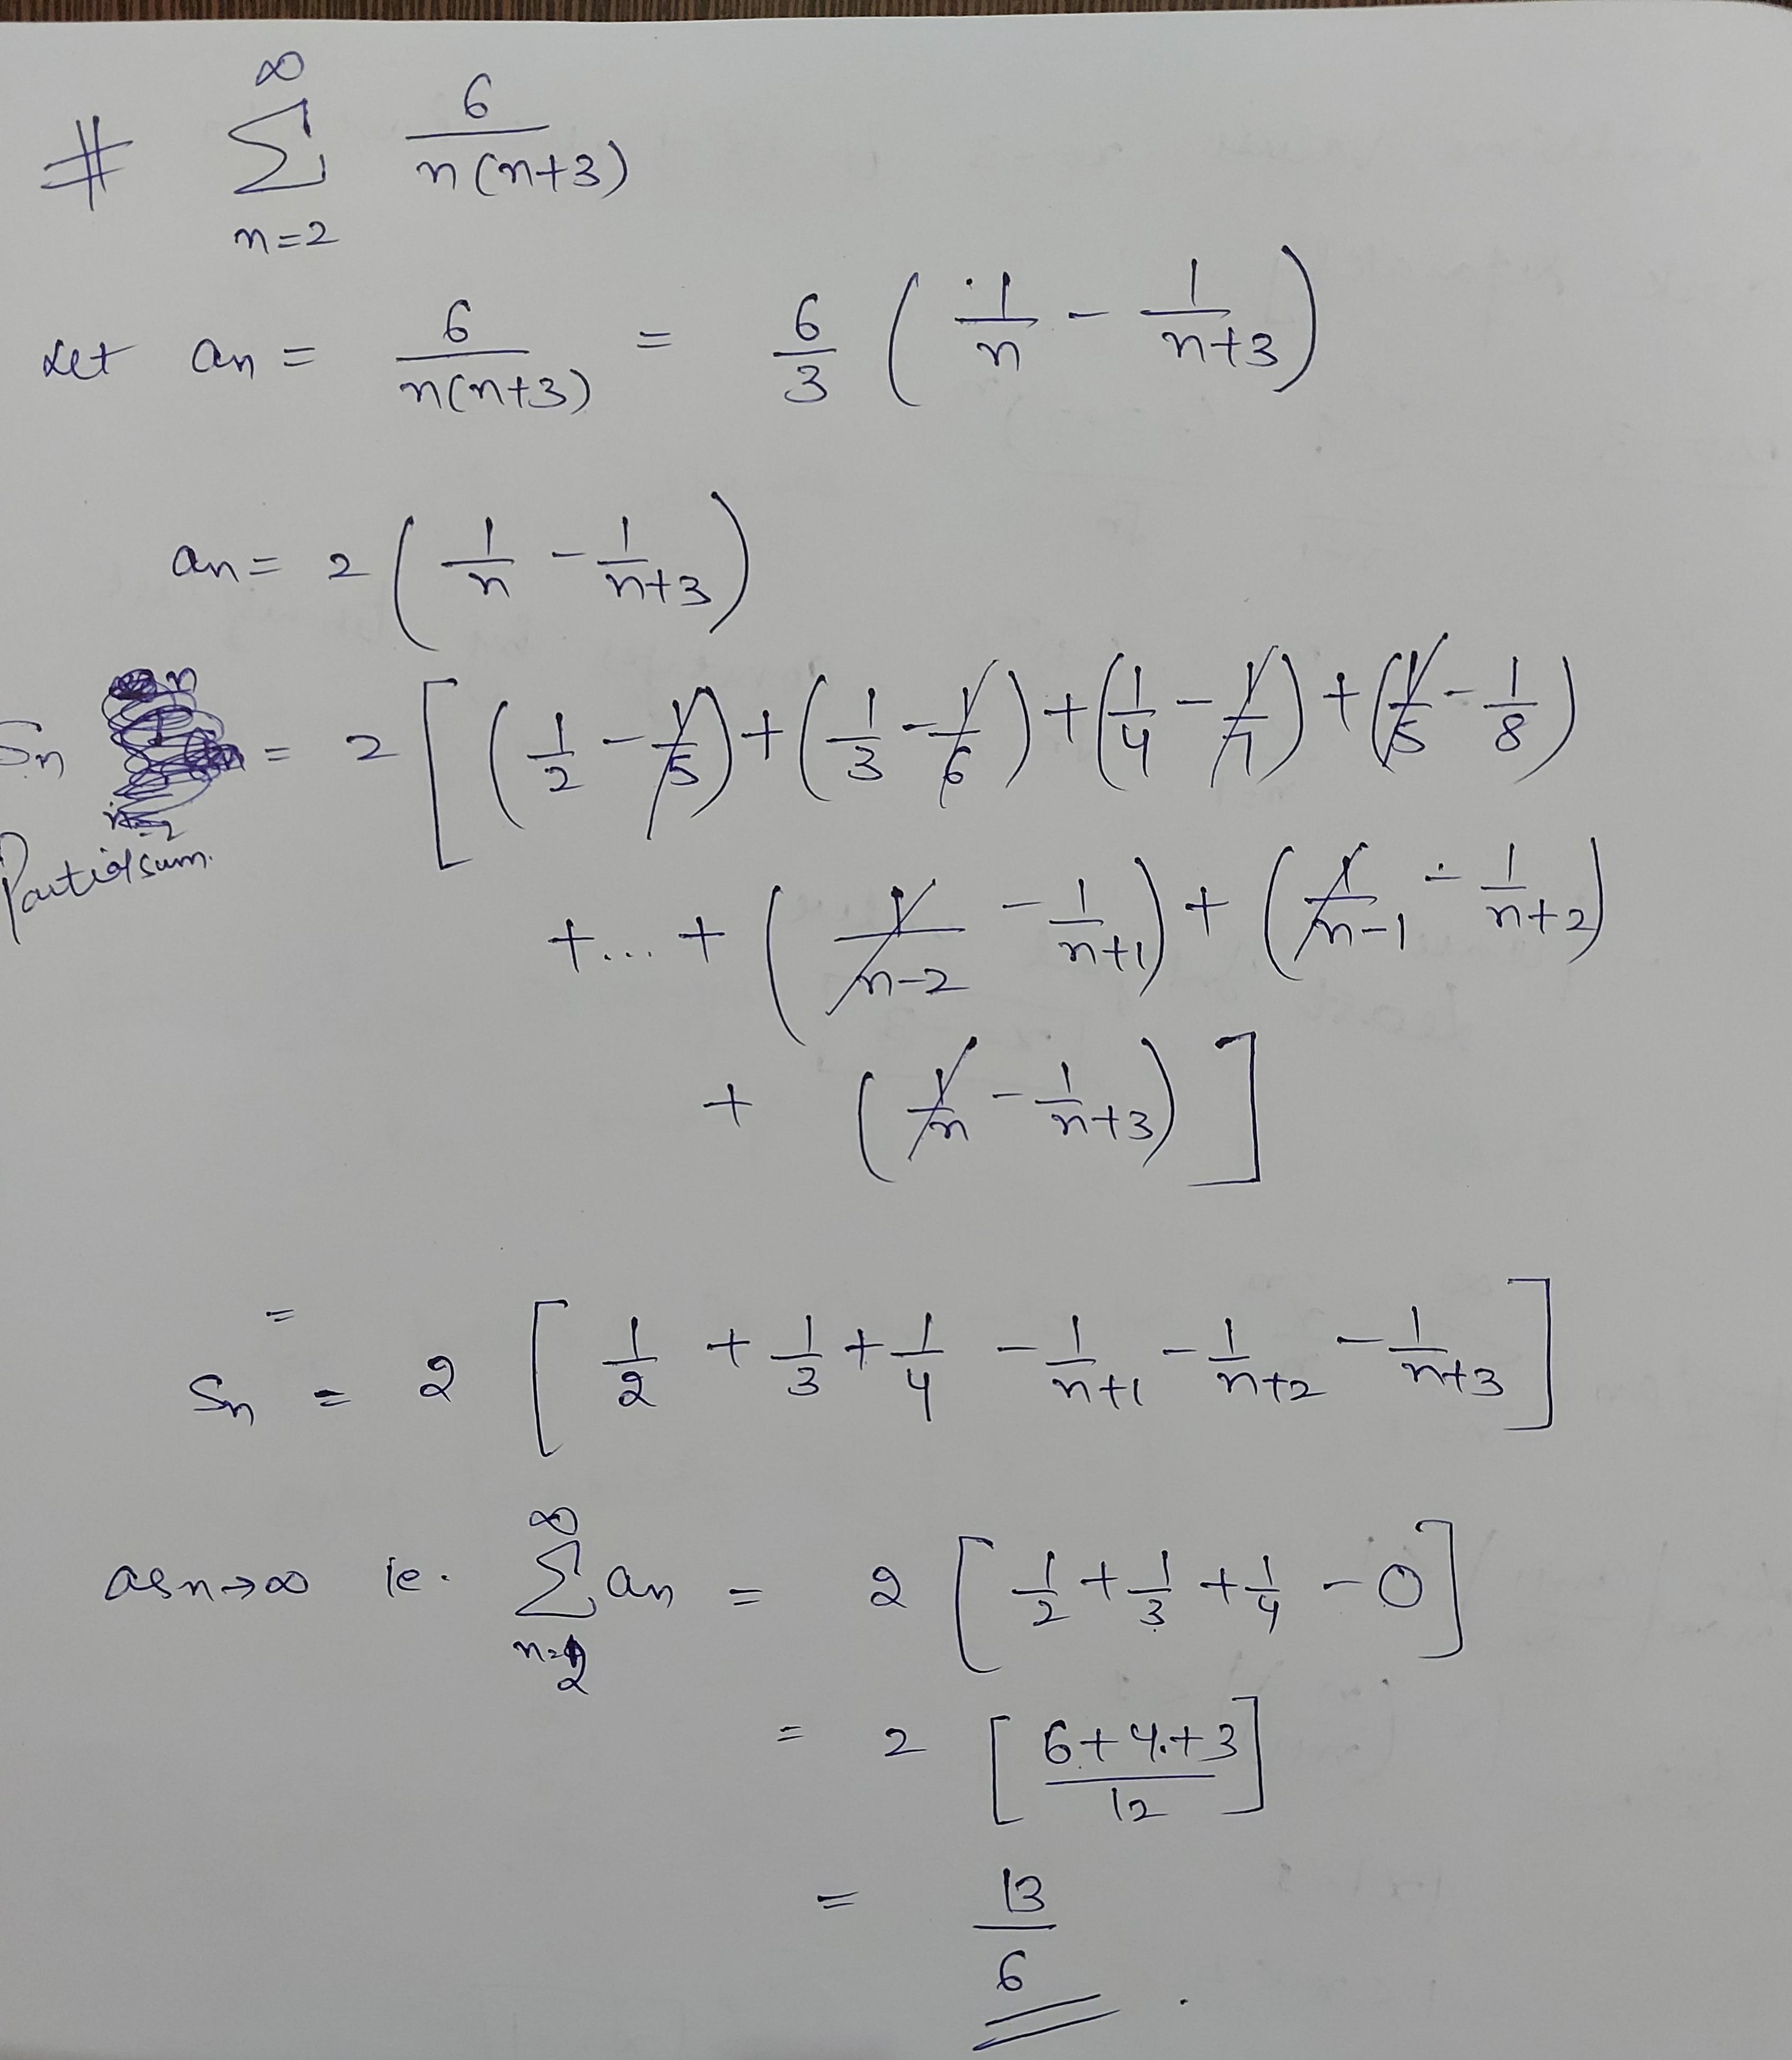 # ∞ Σ n=2 6/n(n+3)
Let an = 6/n(n+3) = 6/3 (1/n - 1/n+3)
an = 2 (1/n - 1/n+3)
Sn = 2 [(1/2 - 1/5) + (1/3 - 1/6) + (1/4 - 1/7) + (1/5 - 1/8)
Partial sum.
+ ... + (1/n-2 - 1/n+1) + (1/n-1 - 1/n+2)
+ (1/n - 1/n+3)]
=
Sn = 2 [1/2 + 1/3 + 1/4 - 1/n+1 - 1/n+2 - 1/n+3]
as n→∞ ie. ∞ Σ n=2 an = 2 [1/2 + 1/3 + 1/4 - 0]
= 2 [6+4+3/12]
= 13/6